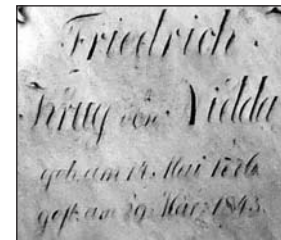 Friedrich
Krug von Nidda
geb. am 14. Mai 1776.
gest. am 29. März 1843.